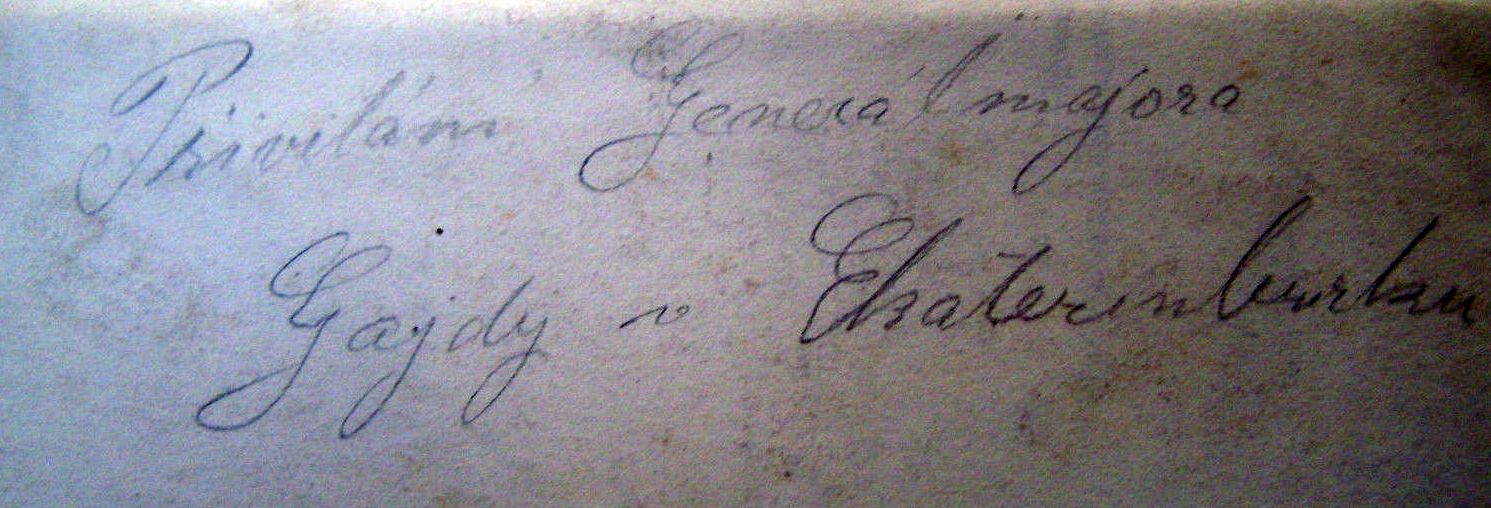 Přivitáni Generálmajora
Gajdy v Ekaterinburku